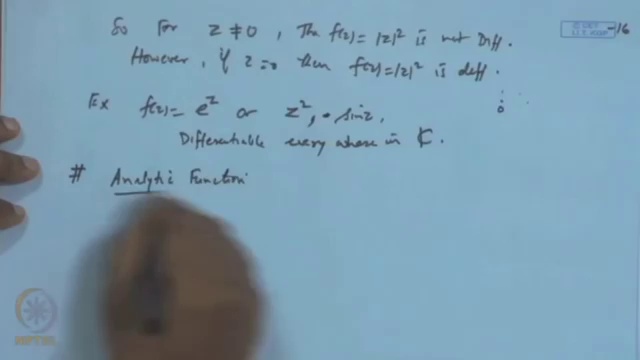 So For z ≠ 0, The f(z) = |z|² is not Diff.
However, if z=0 then f(z) = |z|² is diff.
Ex f(z) = e^z or z², sin z,
Differentiable every where in ₵.
# Analytic Function
-16
NPTEL